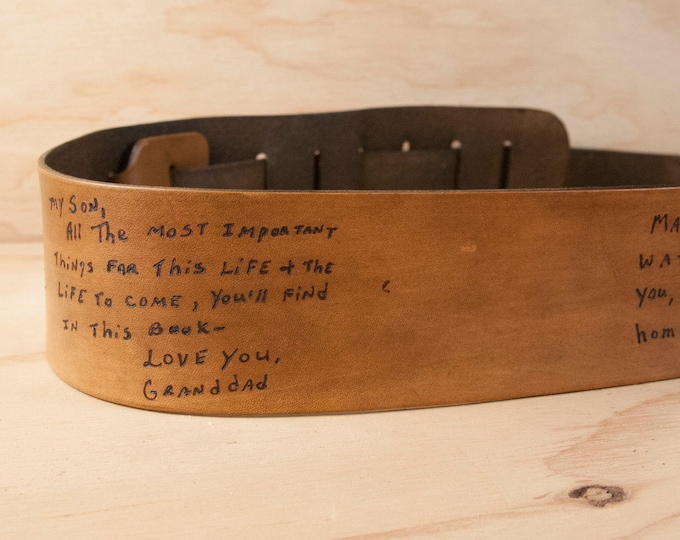 My Son,
All The Most Important
Things For This Life + The
Life To Come, You'll Find
In This Book-
Love You,
Granddad
you,